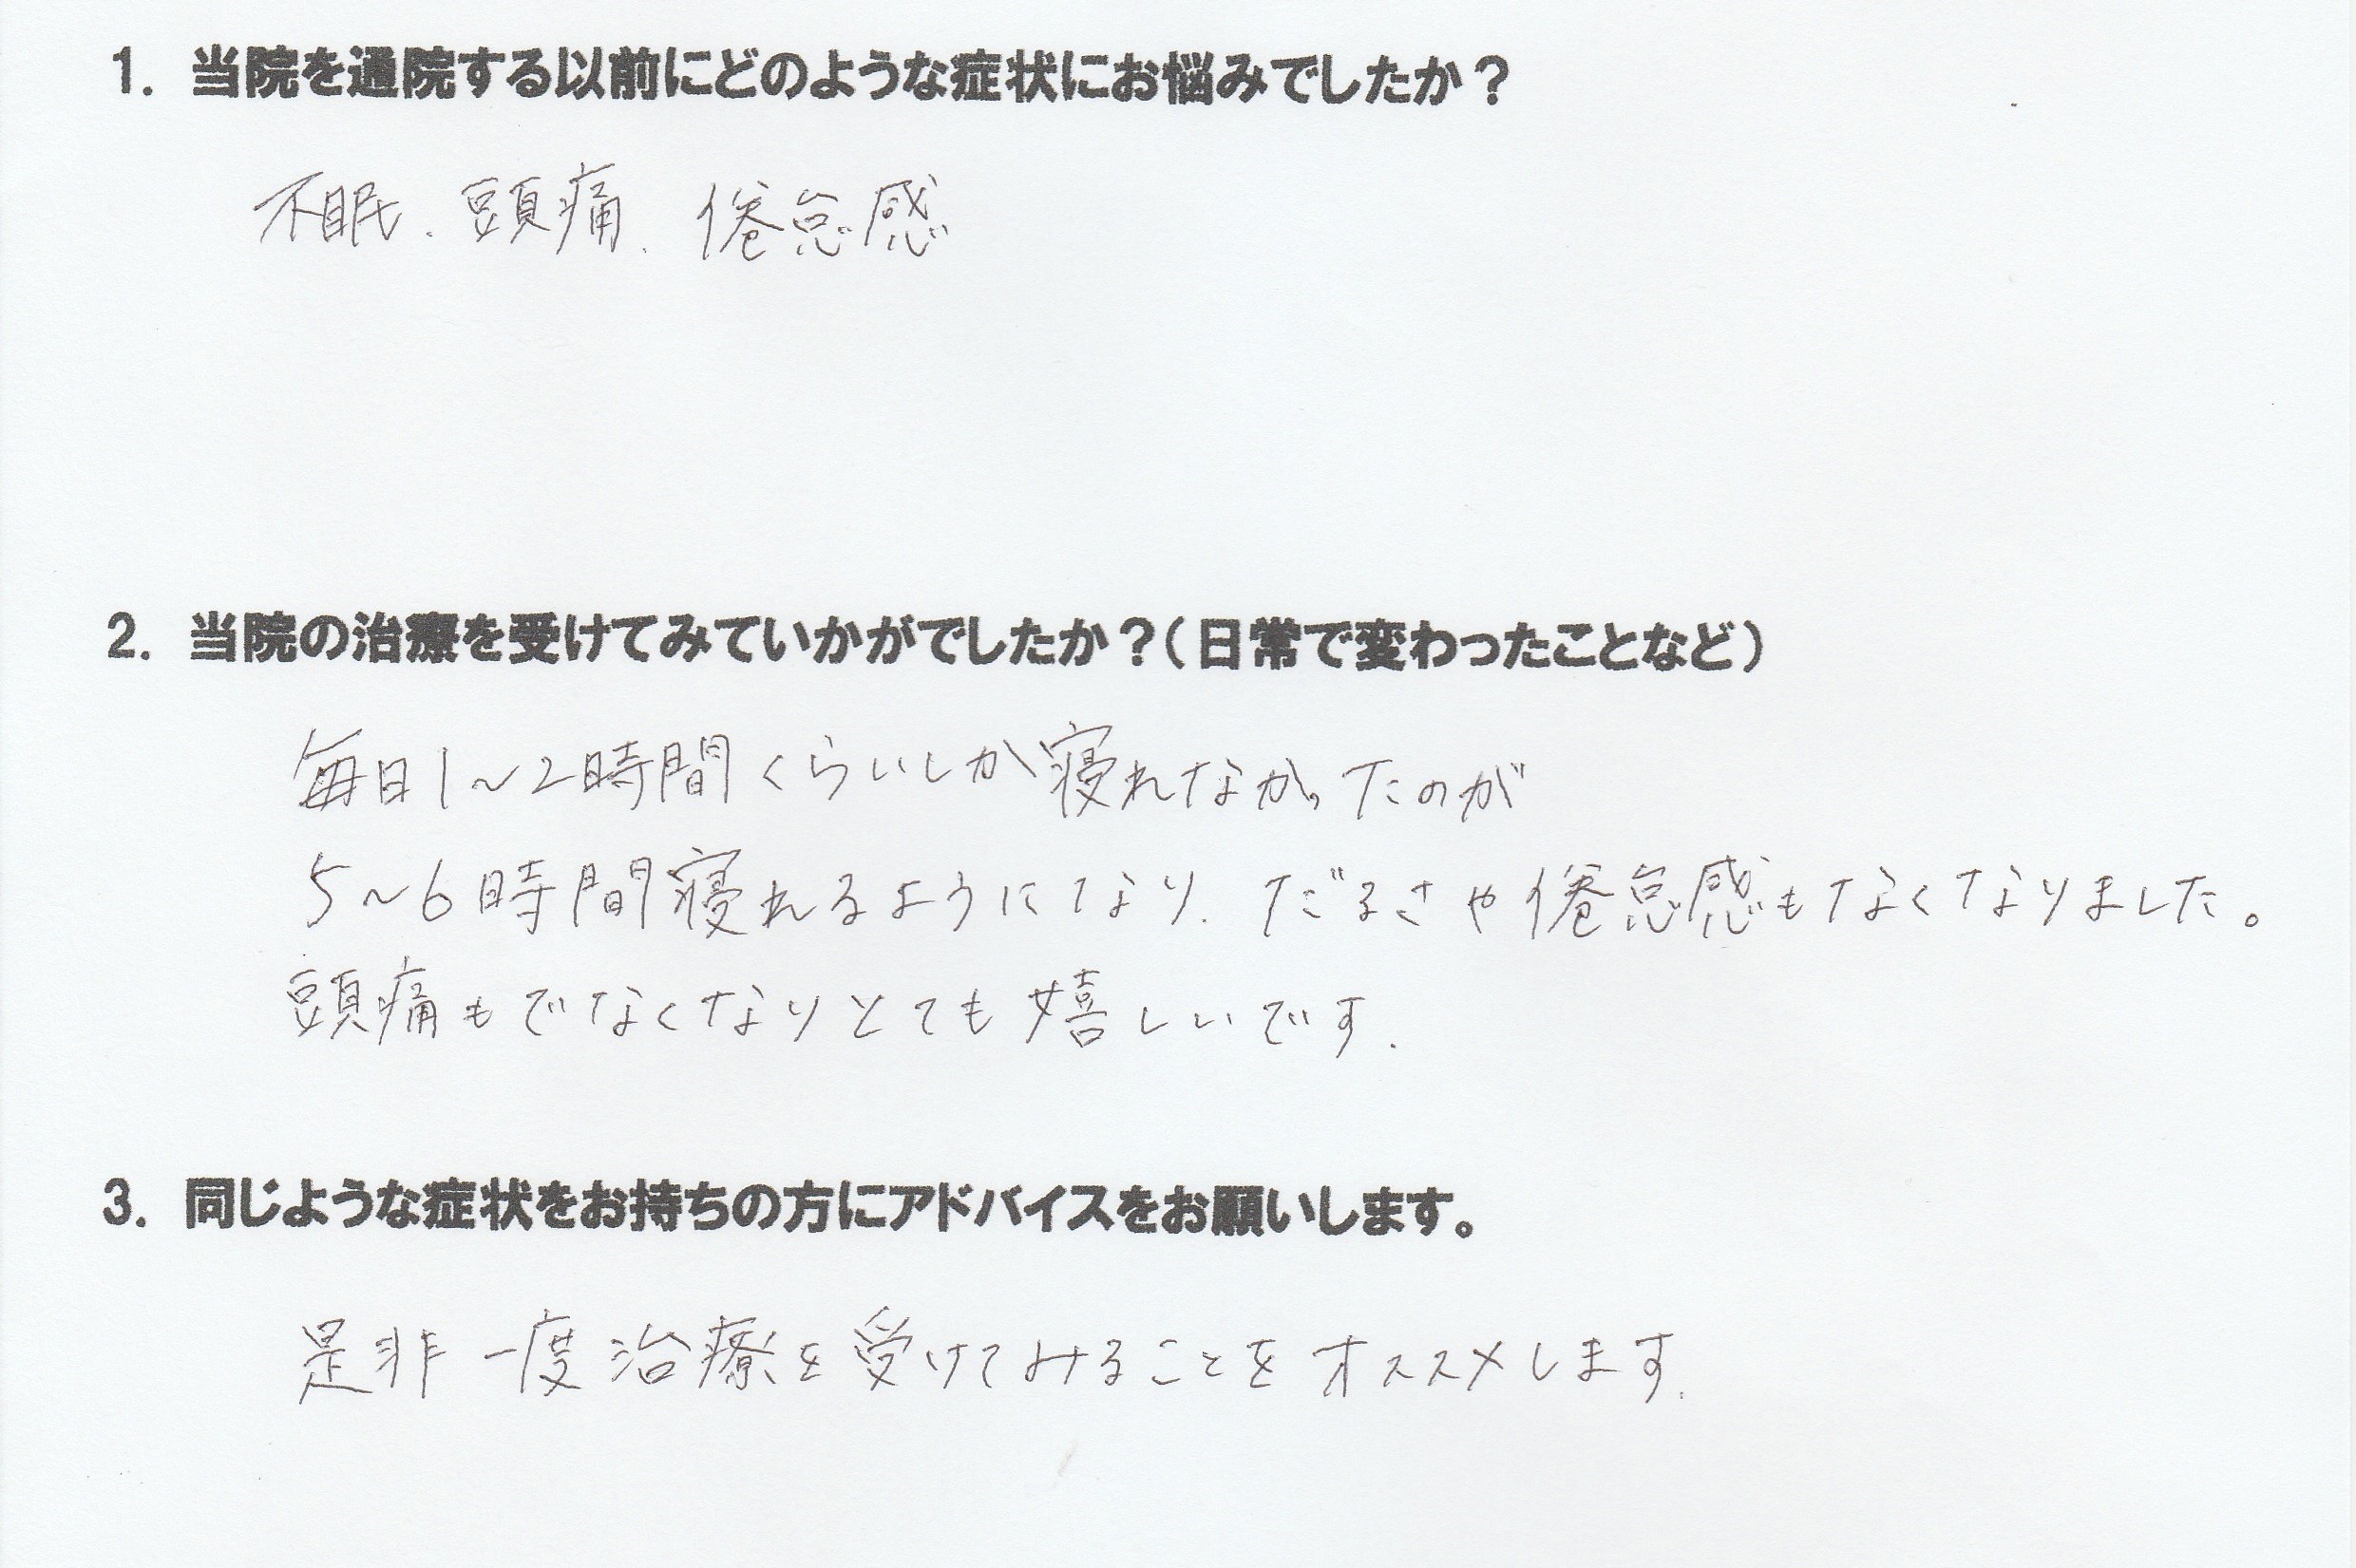 1. 当院を通院する以前にどのような症状にお悩みでしたか？
不眠、頭痛、倦怠感
2. 当院の治療を受けてみていかがでしたか？（日常で変わったことなど）
毎日1～2時間くらいしか寝れなかったのが
5～6時間寝れるようになり、だるさや倦怠感もなくなりました。
頭痛もでなくなりとても嬉しいです。
3. 同じような症状をお持ちの方にアドバイスをお願いします。
是非一度治療を受けてみることをオススメします。